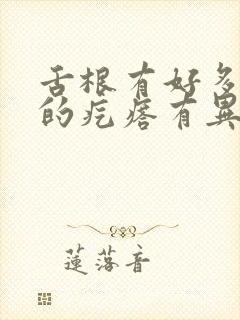 舌根有好多
的疙瘩有異
蓮落音